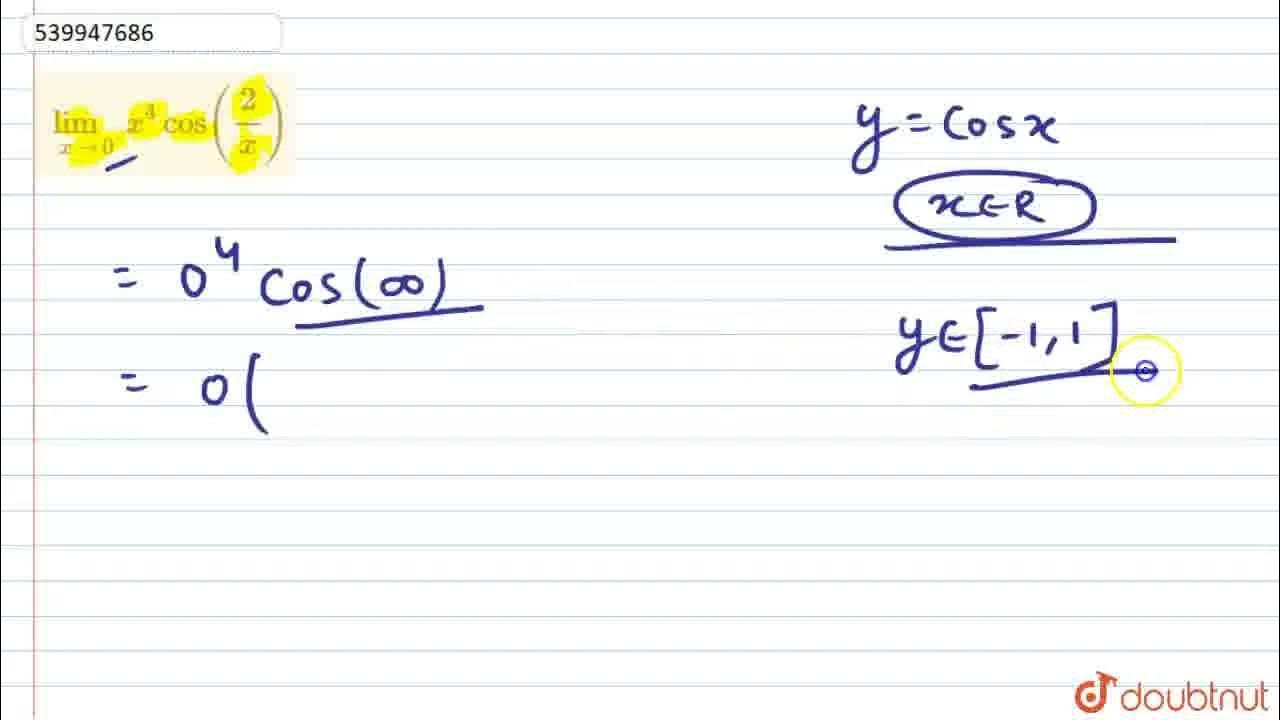 539947686
lim x→0 x⁴ cos(2/x)
= 0⁴ cos(∞)
= 0(
y = cos x
x∈R
y∈[-1,1]
doubtnut